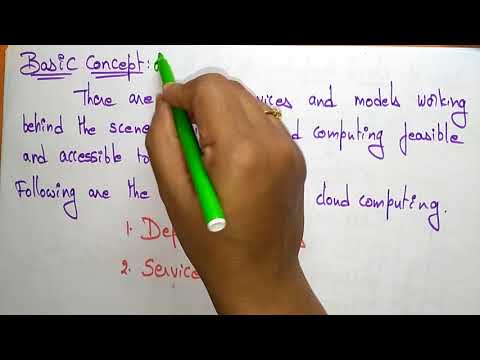 Basic Concept:
There are and models working
behind the computing feasible
and accessible
Following are the cloud computing.
1.
2. Service